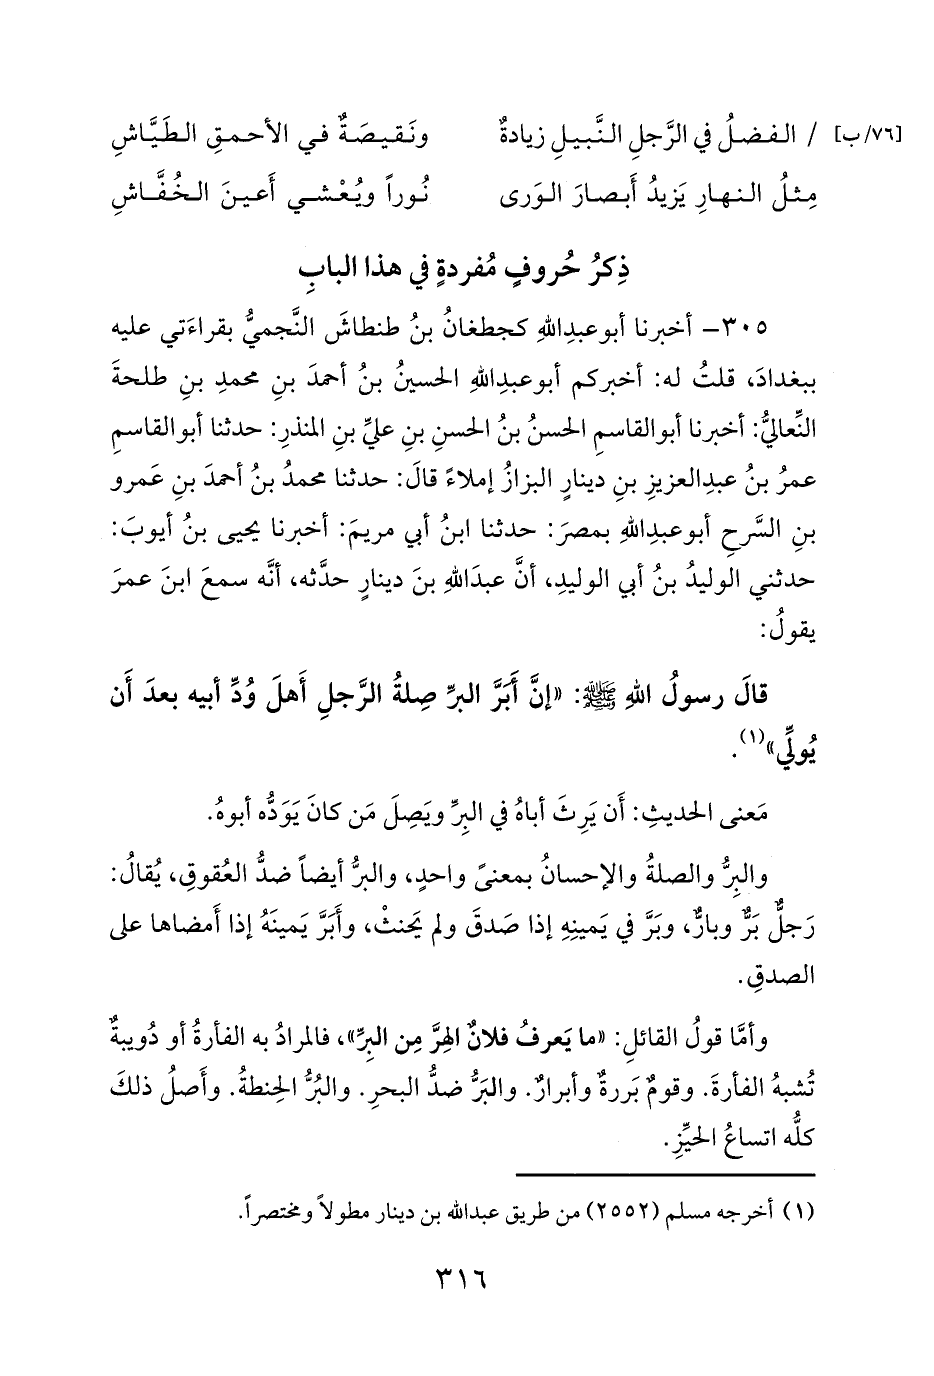 [٧٦/ب] / الفضلُ في الرَّجلِ النَّبيلِ زيادةٌ ونَقيصَةٌ في الأحمقِ الطَيَّاشِ
مِثلُ النهارِ يَزيدُ أَبصارَ الوَرى نُوراً ويُعْشي أَعينَ الخُفَّاشِ
ذِكرُ حُروفٍ مُفردةٍ في هذا البابِ
٣٠٥– أخبرنا أبوعبدِاللهِ كجطغانُ بنُ طنطاشَ النَّجميُّ بقراءَتي عليه
ببغدادَ، قلتُ له: أخبركم أبوعبدِاللهِ الحسينُ بنُ أحمدَ بنِ محمدِ بنِ طلحةَ
النِّعاليُّ: أخبرنا أبوالقاسمِ الحسنُ بنُ الحسنِ بنِ عليِّ بنِ المنذرِ: حدثنا أبوالقاسمِ
عمرُ بنُ عبدِالعزيزِ بنِ دينارٍ البزازُ إملاءً قالَ: حدثنا محمدُ بنُ أحمدَ بنِ عَمرو
بنِ السَّرحِ أبوعبدِاللهِ بمصرَ: حدثنا ابنُ أبي مريمَ: أخبرنا يحيى بنُ أيوبَ:
حدثني الوليدُ بنُ أبي الوليدِ، أنَّ عبدَاللهِ بنَ دينارٍ حدَّثه، أنَّه سمعَ ابنَ عمرَ
يقولُ:
قالَ رسولُ اللهِ ﷺ: «إنَّ أَبَرَّ البرِّ صِلةُ الرَّجلِ أَهلَ وُدِّ أبيه بعدَ أَن
يُولِّي»(١).
مَعنى الحديثِ: أَن يَرِثَ أباهُ في البِرِّ ويَصِلَ مَن كانَ يَوَدُّه أبوهُ.
والبِرُّ والصلةُ والإحسانُ بمعنىً واحدٍ، والبرُّ أيضاً ضدُّ العُقوقِ، يُقالُ:
رَجلٌ بَرٌّ وبارٌّ، وبَرَّ في يَمينِهِ إذا صَدقَ ولم يَحنثْ، وأَبَرَّ يَمينَهُ إذا أَمضاها على
الصدقِ.
وأمَّا قولُ القائلِ: «ما يَعرفُ فلانٌ الهِرَّ مِن البِرِّ»، فالمرادُ به الفأرةُ أو دُويبةٌ
تُشبهُ الفأرةَ. وقومٌ بَررةٌ وأبرارٌ. والبَرُّ ضدُّ البحرِ. والبُرُّ الحِنطةُ. وأَصلُ ذلكَ
كلُّه اتساعُ الحيِّزِ.
(١) أخرجه مسلم (٢٥٥٢) من طريق عبدالله بن دينار مطولاً ومختصراً.
٣١٦